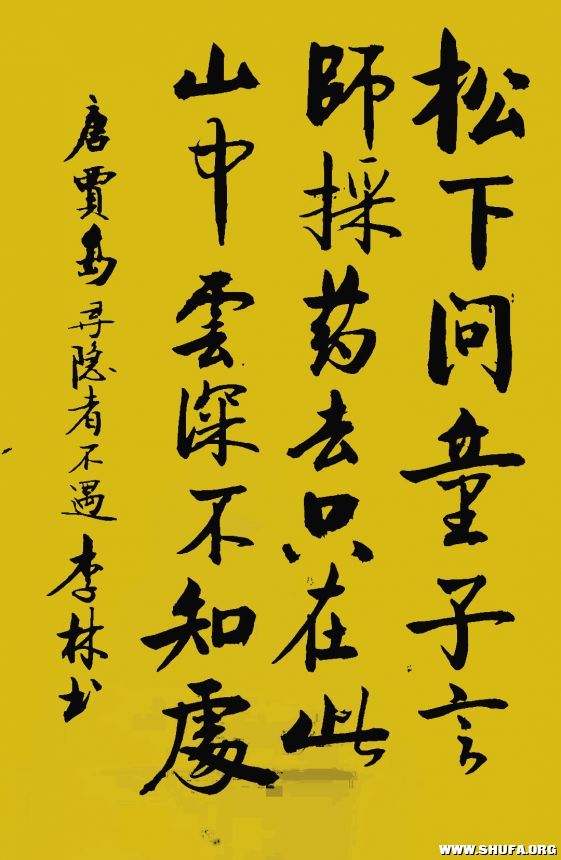 松下问童子言
師採药去只在此
山中雲深不知處
唐賈島寻隐者不遇李林书
WWW.SHUFA.ORG